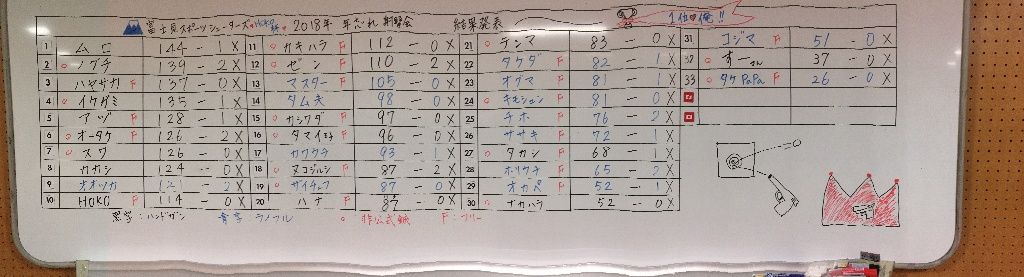 富士見スポーツシューターズ HOKO杯 2018年 年忘れ 射撃会 結果発表 1位の俺!!
1 ムロ 144 - 1X 11 ○カキハラ F 112 - 0X 21 ○テンマ 83 - 0X 31 コジマ F 51 - 0X
2 ○ノグチ 139 - 2X 12 ○ゼン F 110 - 2X 22 タケダ F 82 - 1X 32 ○すーさん 37 - 0X
3 ハヤサカ F 137 - 0X 13 マスター F 105 - 0X 23 オグマ F 81 - 1X 33 ○タケPaPa F 26 - 0X
4 ○イケガミ 135 - 1X 14 タム夫 98 - 0X 24 F 81 - 0X
5 アヅ F 128 - 1X 15 ○カシワダ F 97 - 0X 25 チホ F 76 - 2X
6 ○オータケ F 126 - 2X 16 ○タマイ F 96 - 0X 26 ササキ F 72 - 1X
7 ○スワ 126 - 0X 17 カワウチ 93 - 1X 27 ○タカシ F 68 - 1X
8 カガシ 124 - 0X 18 ○ヌコジルシ F 87 - 2X 28 ホリウチ F 65 - 2X
9 オオツカ 2X 19 ○ザイチェフ 87 - 0X 29 オカベ F 52 - 1X
10 HOKO F 114 - 0X 20 ハナ F 87 - 0X 30 ○ナカハラ 52 - 0X
黒字:ハンドガン 青字:ライフル ○非公式戦 F:フリー